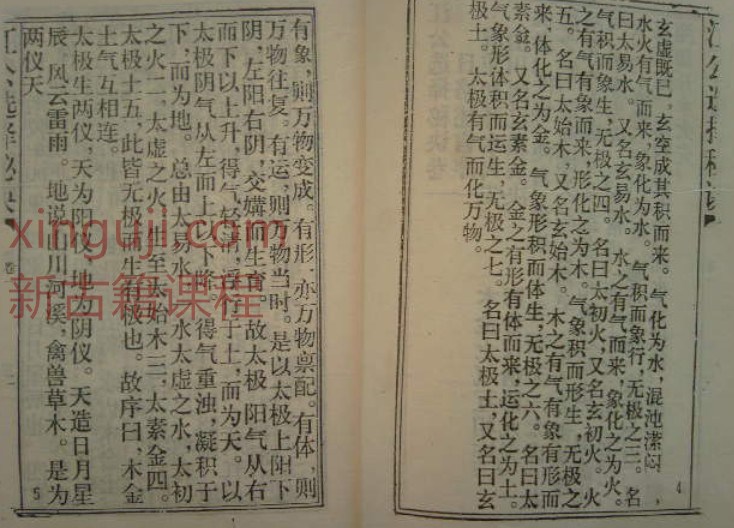 玄虚既已,玄空成其积而来。气化为水,混沌潆闷,
水火有气而来,象化为水。气积而象行,无极之三。名
曰太易水。又名玄易水。水之有气而来,象化之为火。
气积而象生,无极之四。名曰太初火,又名玄初火。火
之有气有象而来,形化之为木。气象积而形生,无极之
五。名曰太始木,又名玄始木。木之有气有象有形而
来,体化之为金。气象形积而体生,无极之六。名曰太
素金。又名玄素金。金之有形有体而来,运化之为土。
气象形体积而运生,无极之七。名曰太极土,又名曰玄
极土。太极有气而化万物。
4
有象,则万物变成。有形,亦万物禀配。有体,则
万物往复。有运,则万物当时。是以太极上阳下
阴,左阳右阴,交媾而生育。故太极阳气从右
而下以上升,得气轻清,浮行于土,而为天。以
太极阴气从左而上以下降,得气重浊,凝积于
下,而为地。总由太易水一,水太虚之水,太初
之火二,太虚之火,生至太始木三,太素金四。
太极土五,此皆无极而生有极也。故序曰,木金
土气互相连。
太极生两仪,天为阳仪,地为阴仪。天造日月星
辰,风云雷雨。地说山川河溪,禽兽草木。是为
两仪天
江公选择秘诀
5
xingujicom
新古籍课程